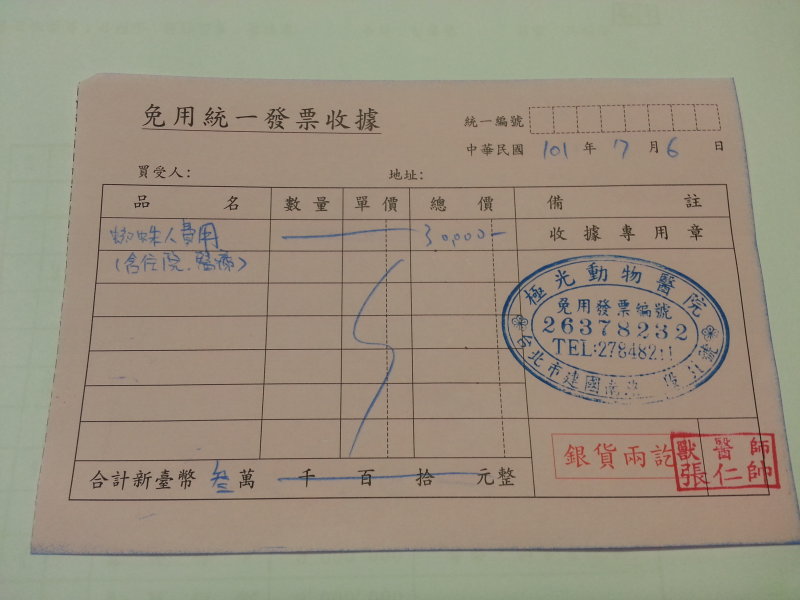 免用統一發票收據
統一編號
中華民國 101 年 7 月 6 日
買受人： 地址：
品名 數量 單價 總價 備註
蜘蛛人費用 30,000- 收據專用章
(含住院、醫療)
極光動物醫院
免用發票編號
26378232
TEL:278482
台北市建國南
銀貨兩訖
獸醫師
張仁帥
合計新臺幣 叁 萬 千 百 拾 元整